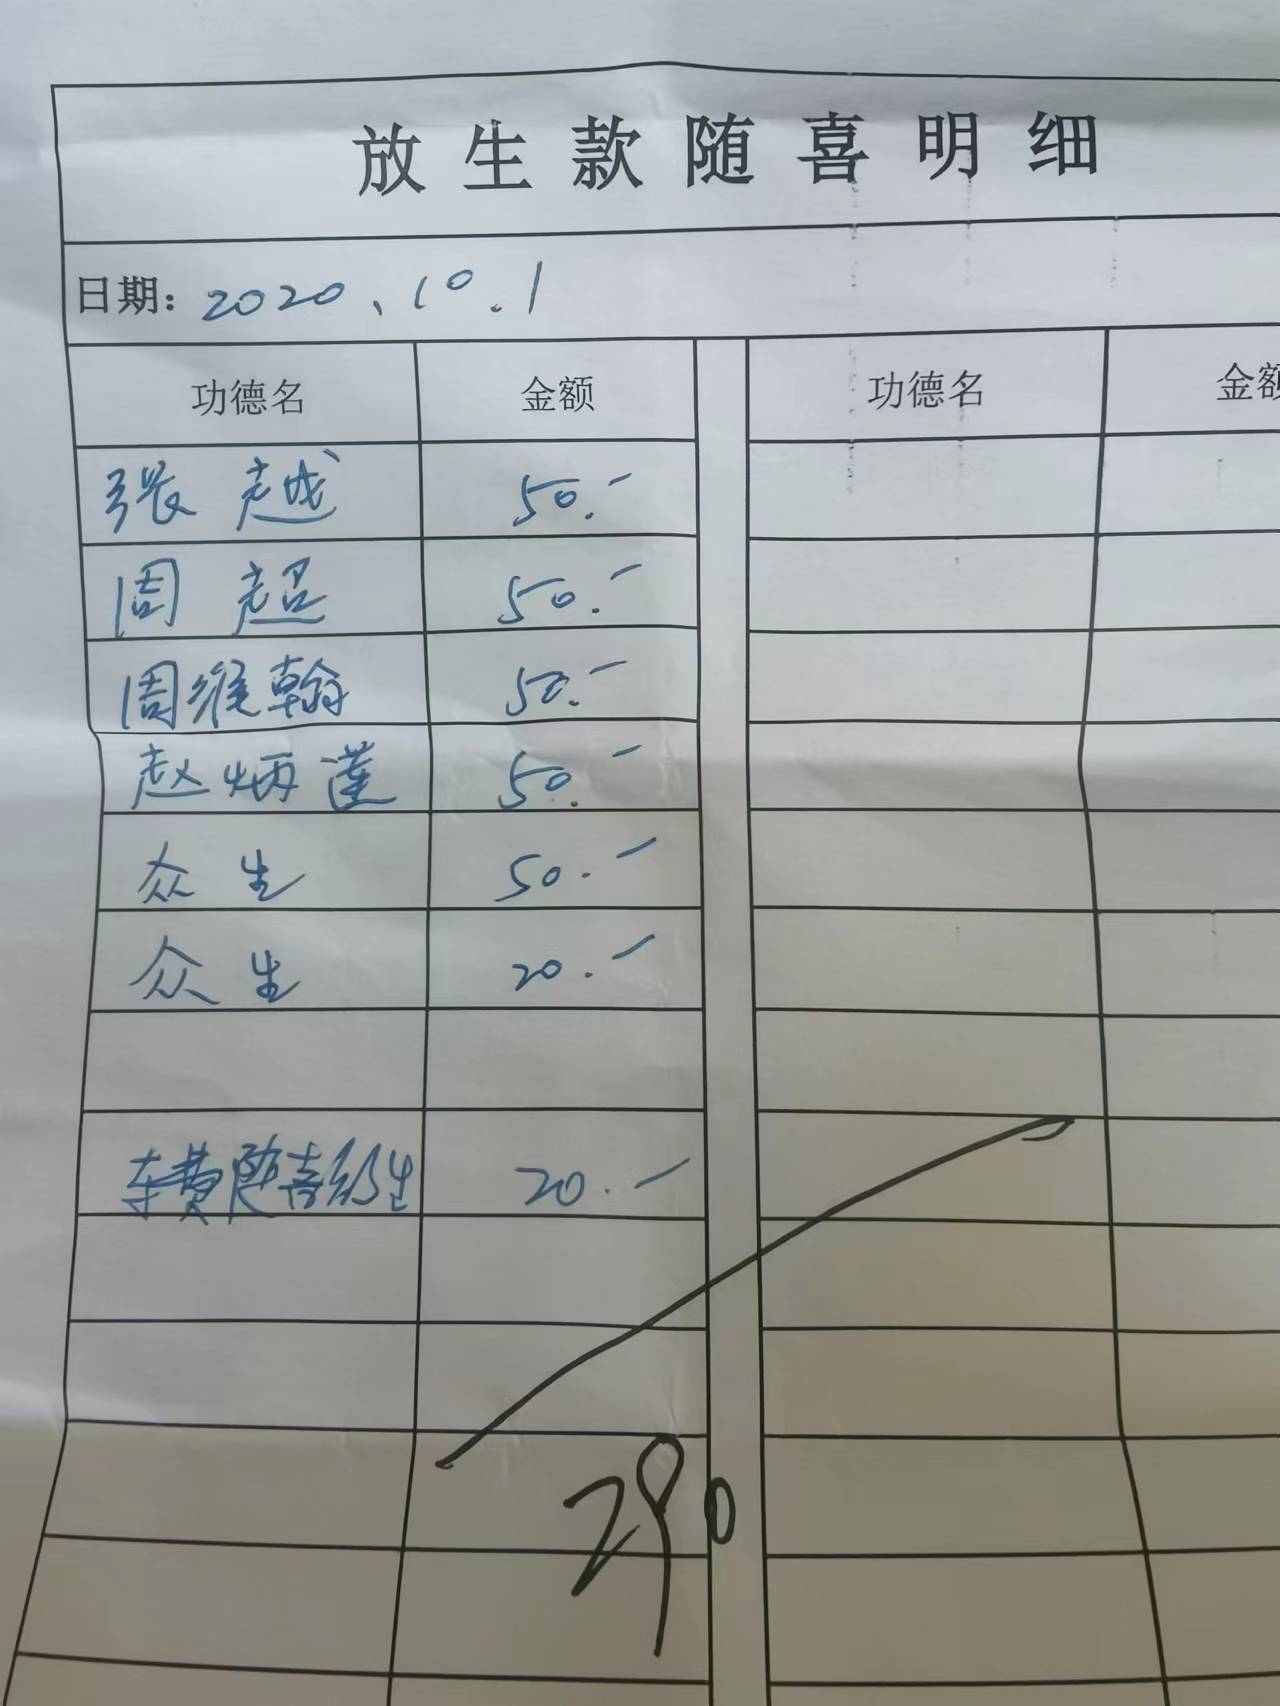 放生款随喜明细
日期: 2020、10.1
功德名 金额 功德名 金额
张越 50.-
周超 50.-
周维翰 50.-
赵炳莲 50.-
众生 50.-
众生 20.-
车费随喜放生 20.-
290